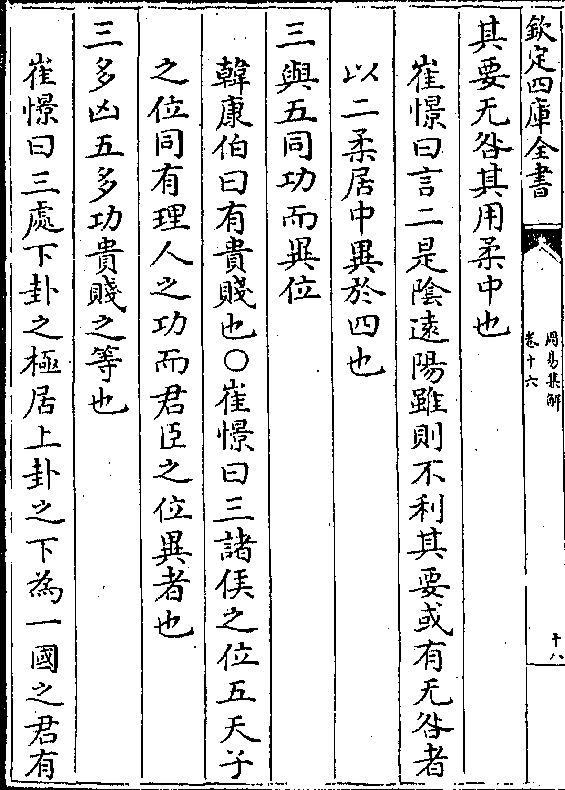 欽定四庫全書
周易集解
卷十六
十八
其要无咎其用柔中也
崔憬曰言二是陰遠陽雖則不利其要或有无咎者
以二柔居中異於四也
三與五同功而異位
韓康伯曰有貴賤也○崔憬曰三諸侯之位五天子
之位同有理人之功而君臣之位異者也
三多凶五多功貴賤之等也
崔憬曰三處下卦之極居上卦之下為一國之君有